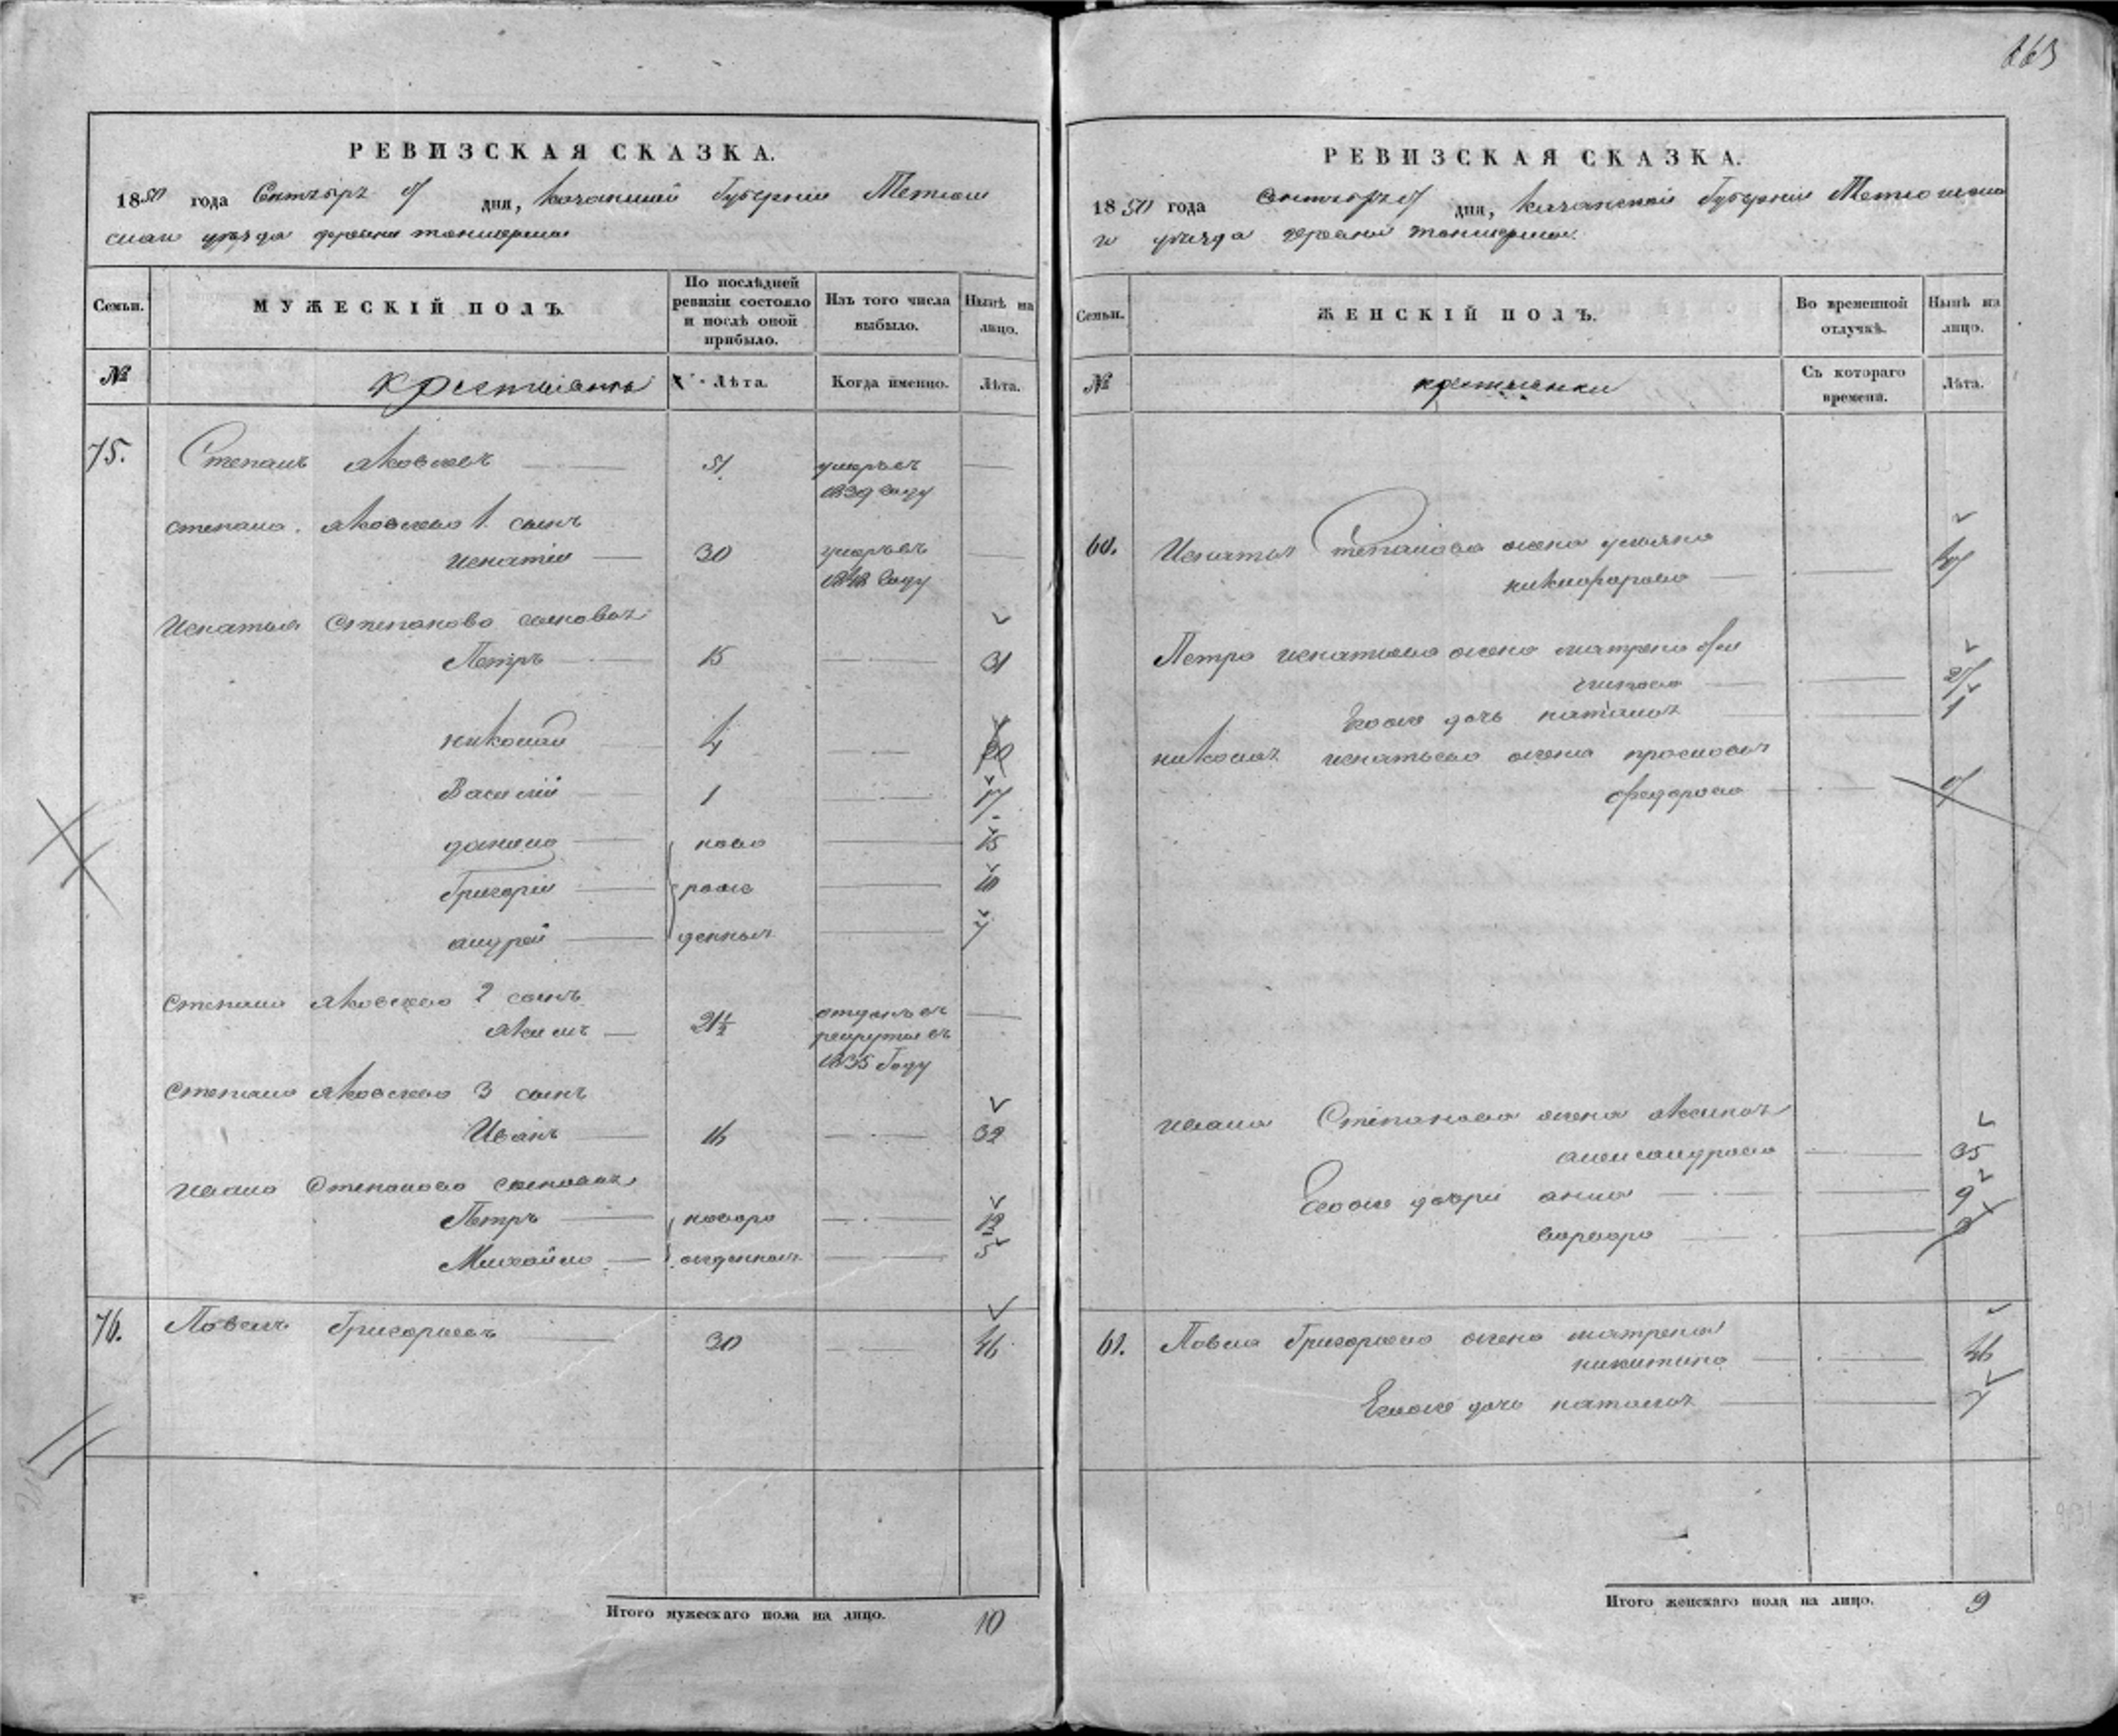 263
РЕВИЗСКАЯ СКАЗКА.
1850 года Сентябрь дня, Казанской Губернии Тетюш
скаи уезда деревни
Семьи.
МУЖЕСКІЙ ПОЛЪ.
По послѣдней ревизіи состояло и послѣ оной прибыло.
Изъ того числа выбыло.
Нынѣ на лицо.
№
крестьянъ
Лѣта.
Когда именно.
Лѣта.
75.
Степанъ Яковлевъ 51 умръ въ
1839 Году
Степана Яковлева 1 сынъ
Игнатіи 30 умръ въ
1848 Году
Игнатья Степанова сыновья
Петръ 15 31
Николай 4 20
Василій 1 17
Данило ново 15
Григорій рожде 10
Андрей денныя 7
Степана Яковлева 2 сынъ
Якимъ 21½ отданъ въ
рекруты въ
1835 Году
Степана Яковлева 3 сынъ
Иванъ 16 32
Ивана Степанова сыновья
Петръ новоро 12
Михайло жденныя 5
76. Павелъ Григорьевъ 30 46
Итого мужескаго пола на лицо. 10
РЕВИЗСКАЯ СКАЗКА.
1850 года Сентября дня, Казанской Губернии Тетюшска
го уезда деревни
Семьи.
ЖЕНСКІЙ ПОЛЪ.
Во временной отлучкѣ.
Нынѣ на лицо.
№
крестьянки
Съ котораго времени.
Лѣта.
60. Игнатья Степанова жена Ульяна
Никифорова
Петра Игнатьева жена Матрена
Его же дочь Наталья 1
Николая Игнатьева жена Прасковья
Федорова
Ивана Степанова жена Аксинья
Александрова 35
Его же дочри Анна 9
Варвара
61. Павла Григорьева жена Матрена
Никитина 46
Его же дочь Наталья 7
Итого женскаго пола на лицо. 9